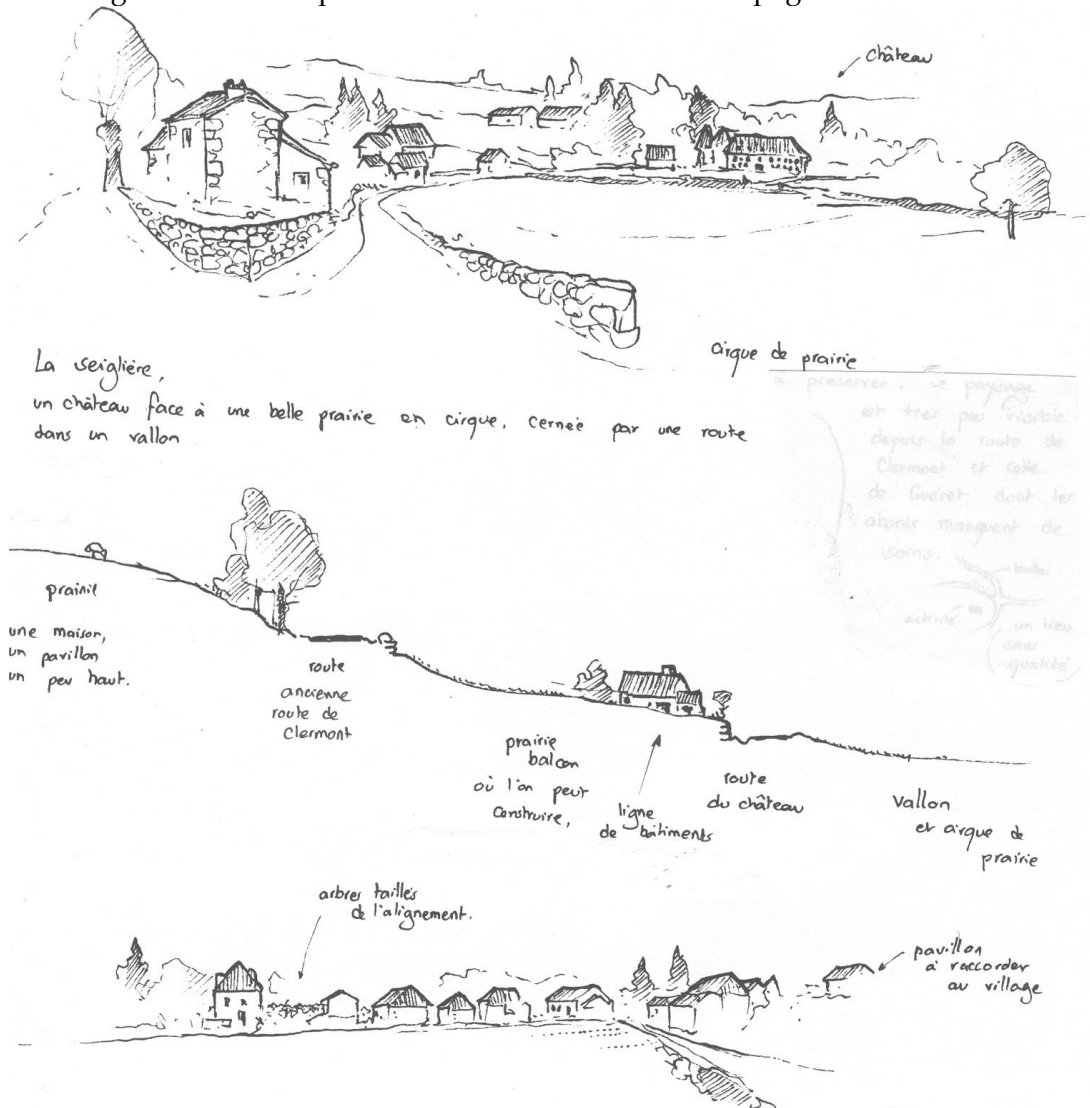 château
La Seiglière,
un château face à une belle prairie en cirque, cernée par une route
dans un vallon
cirque de prairie
à préserver. Le paysage
est très peu visible
depuis la route de
Clermont et celle
de Guéret dont les
abords manquent de
soins.
butte
un lieu
sans
qualité
prairie
une maison,
un pavillon
un peu haut.
route
ancienne
route de
Clermont
prairie
balcon
où l'on peut
construire,
ligne
de bâtiments
route
du château
vallon
et cirque de
prairie
arbres taillés
de l'alignement.
pavillon
à raccorder
au village